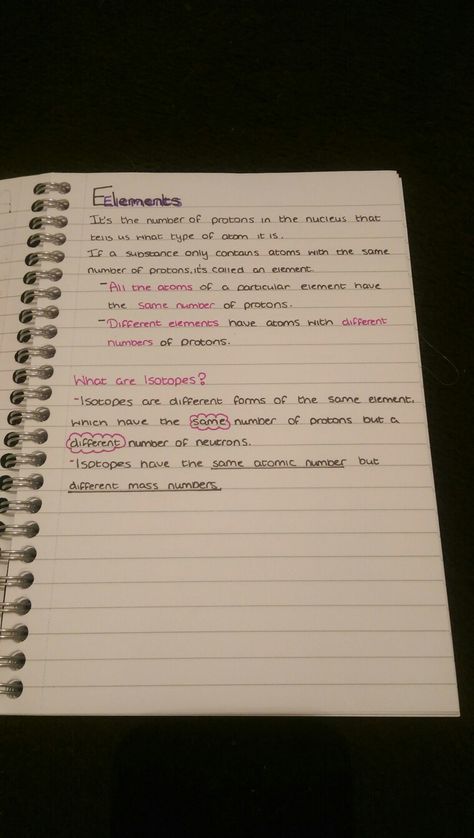 Elements
It's the number of protons in the nucleus that
tells us what type of atom it is.
If a substance only contains atoms with the same
number of protons, it's called an element.
- All the atoms of a particular element have
the same number of protons.
- Different elements have atoms with different
numbers of protons.
What are Isotopes?
- Isotopes are different forms of the same element,
which have the same number of protons but a
different number of neutrons.
- Isotopes have the same atomic number but
different mass numbers.